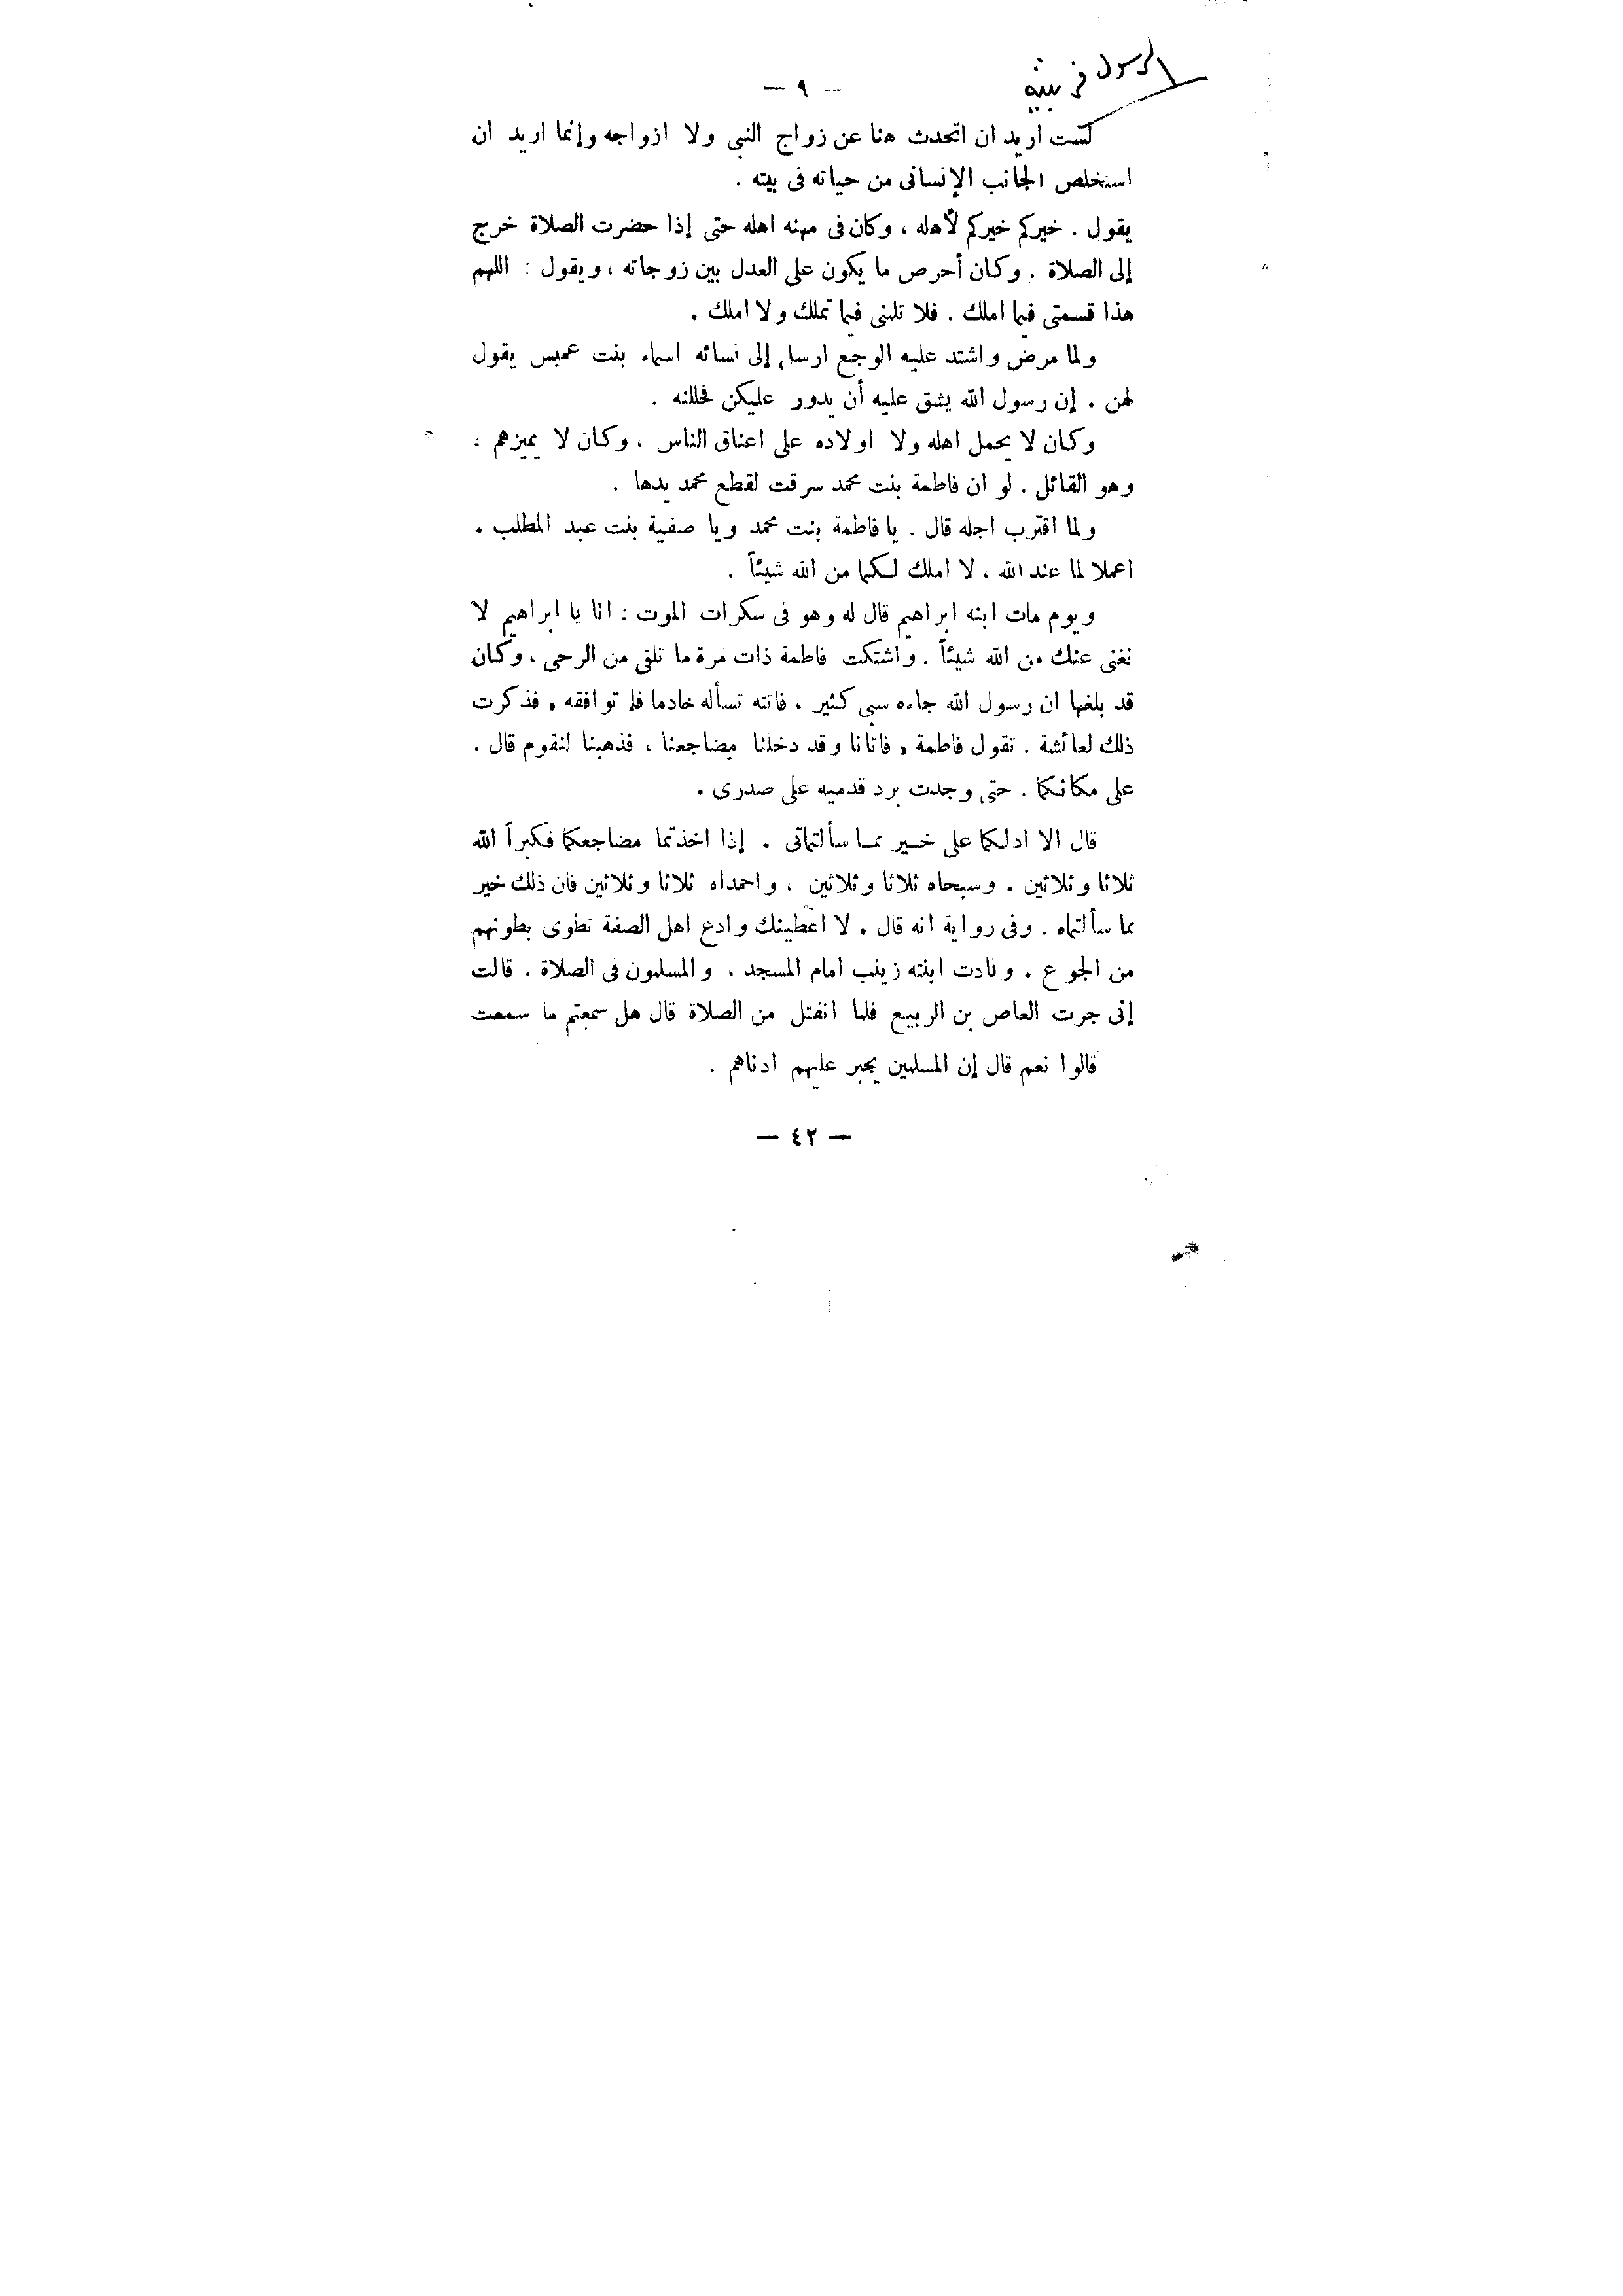 الرسول في بيته
— ٩ —
لست اريد ان اتحدث هنا عن زواج النبي ولا ازواجه وإنما اريد ان
استخلص الجانب الإنسانى من حياته فى بيته .
يقول . خيركم خيركم لأهله ، وكان فى مهنه اهله حتى إذا حضرت الصلاة خرج
إلى الصلاة . وكان أحرص ما يكون على العدل بين زوجاته ، ويقول : اللهم
هذا قسمتى فيما املك . فلا تلمنى فيما تملك ولا املك .
ولما مرض واشتد عليه الوجع ارسل إلى نسائه اسماء بنت عميس يقول
لهن . إن رسول الله يشق عليه أن يدور عليكن فحللنه .
وكان لا يحمل اهله ولا اولاده على اعناق الناس ، وكان لا يميزهم .
وهو القائل . لو ان فاطمة بنت محمد سرقت لقطع محمد يدها .
ولما اقترب اجله قال . يا فاطمة بنت محمد ويا صفية بنت عبد المطلب .
اعملا لما عند الله ، لا املك لكما من الله شيئاً .
ويوم مات ابنه ابراهيم قال له وهو فى سكرات الموت : انا يا ابراهيم لا
نغنى عنك من الله شيئاً . واشتكت فاطمة ذات مرة ما تلقى من الرحى ، وكان
قد بلغها ان رسول الله جاءه سبى كثير ، فاتته تسأله خادما فلم توافقه ، فذكرت
ذلك لعائشة . تقول فاطمة ، فاتانا وقد دخلنا مضاجعنا ، فذهبنا لنقوم قال .
على مكانكما . حتى وجدت برد قدميه على صدرى .
قال الا ادلكما على خير مما سألتمانى . إذا اخذتما مضاجعكما فكبراً الله
ثلاثا وثلاثين . وسبحاه ثلاثا وثلاثين ، واحمداه ثلاثا وثلاثين فان ذلك خير
مما سألتماه . وفى رواية انه قال . لا اعطينك وادع اهل الصفة تطوى بطونهم
من الجوع . ونادت ابنته زينب امام المسجد ، والمسلمون فى الصلاة . قالت
إنى جرت العاص بن الربيع فلما انفتل من الصلاة قال هل سمعتم ما سمعت
قالوا نعم قال إن المسلمين يجبر عليهم ادناهم .
— ٤٢ —